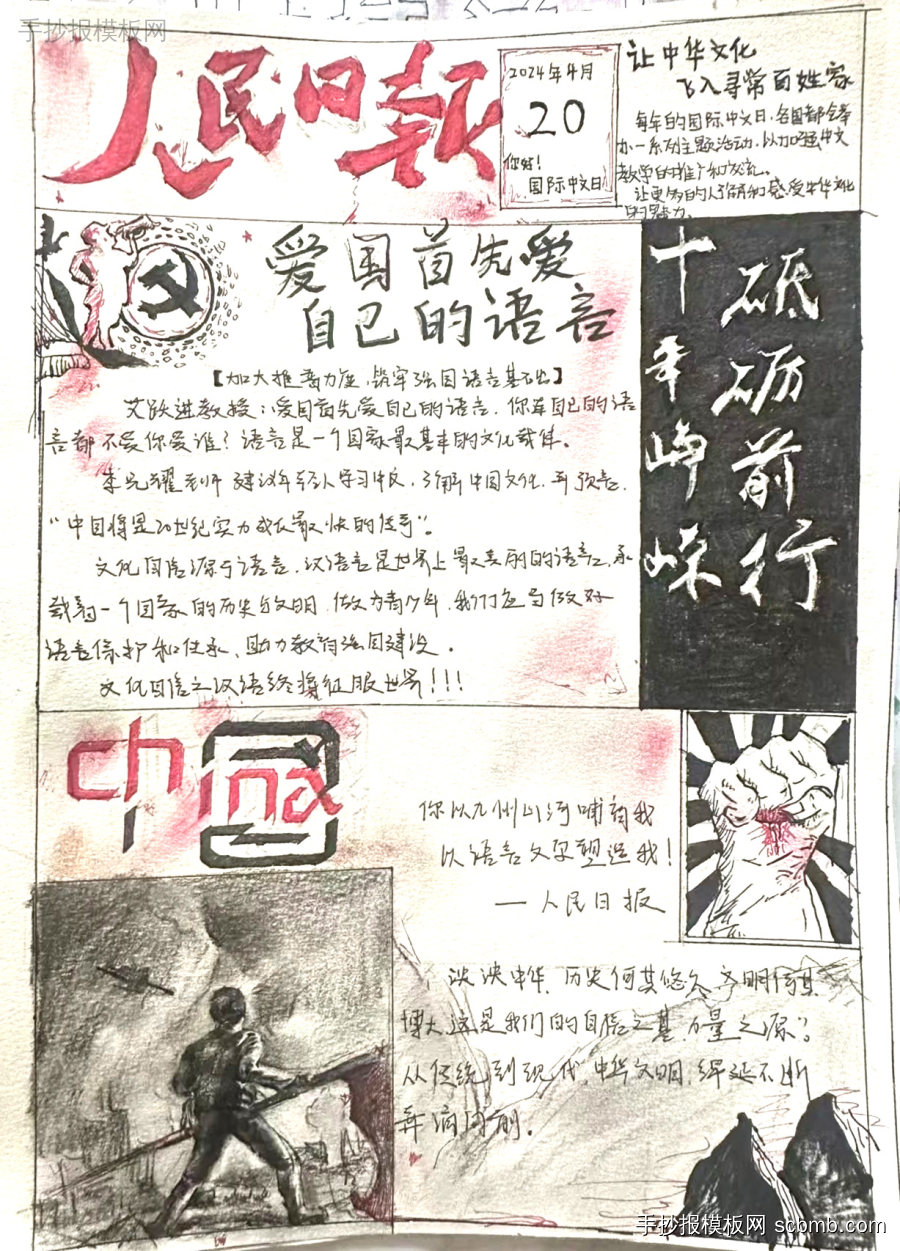 手抄报模板网
人民日報
2024年4月
20
你好!
国际中文日
让中华文化
飞入寻常百姓家
每年的国际中文日,各国都会举
办一系列主题活动,以加强中文
教学的推广和交流。
让更多的人了解和感受中华文化
的魅力。
爱国首先爱
自己的语言
【加大推普力度,筑牢强国语言基石】
艾跃进教授:爱国首先爱自己的语言,你连自己的语
言都不爱你爱谁?语言是一个国家最基本的文化载体。
李光耀 建议年轻人学习中文,了解中国文化,并预言,
“中国将是20世纪实力成长最快的
文化自信源于语言,汉语言是世界上最美丽的语言,承
载着一个国家的历史与文明,做为青少年,我们应当做好
语言保护和传承、助力教育强国建设。
文化自信之汉语终将征服世界!!!
十年峥嵘
砥砺前行
china
国
你以九州山河哺育我
以语言文字塑造我!
— 人民日报
泱泱中华,历史何其悠久,文明何其
博大,这是我们的自信之基,力量之源?
从传统到现代,中华文明,绵延不断
奔涌向前。
手抄报模板网 scbmb.com